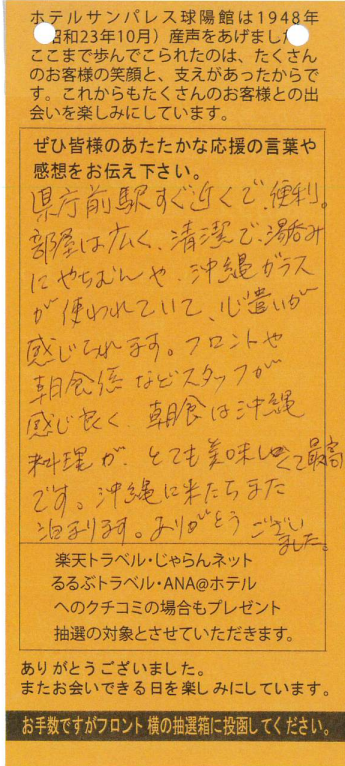 ホテルサンパレス球陽館は1948年
昭和23年10月）産声をあげました
ここまで歩んでこられたのは、たくさん
のお客様の笑顔と、支えがあったからで
す。これからもたくさんのお客様との出
会いを楽しみにしています。
ぜひ皆様のあたたかな応援の言葉や
感想をお伝え下さい。
県庁前駅すぐ近くで、便利。
部屋は広く、清潔で、湯呑み
にやちむんや、沖縄ガラス
が使われていて、心遣いが
感じられます。フロントや
朝食係などスタッフが
感じ良く、朝食は沖縄
料理が、とても美味しくて最高
です。沖縄に来たらまた
泊まります。ありがとうござい
ました。
楽天トラベル・じゃらんネット
るるぶトラベル・ANA@ホテル
へのクチコミの場合もプレゼント
抽選の対象とさせていただきます。
ありがとうございました。
またお会いできる日を楽しみにしています。
お手数ですがフロント横の抽選箱に投函してください。